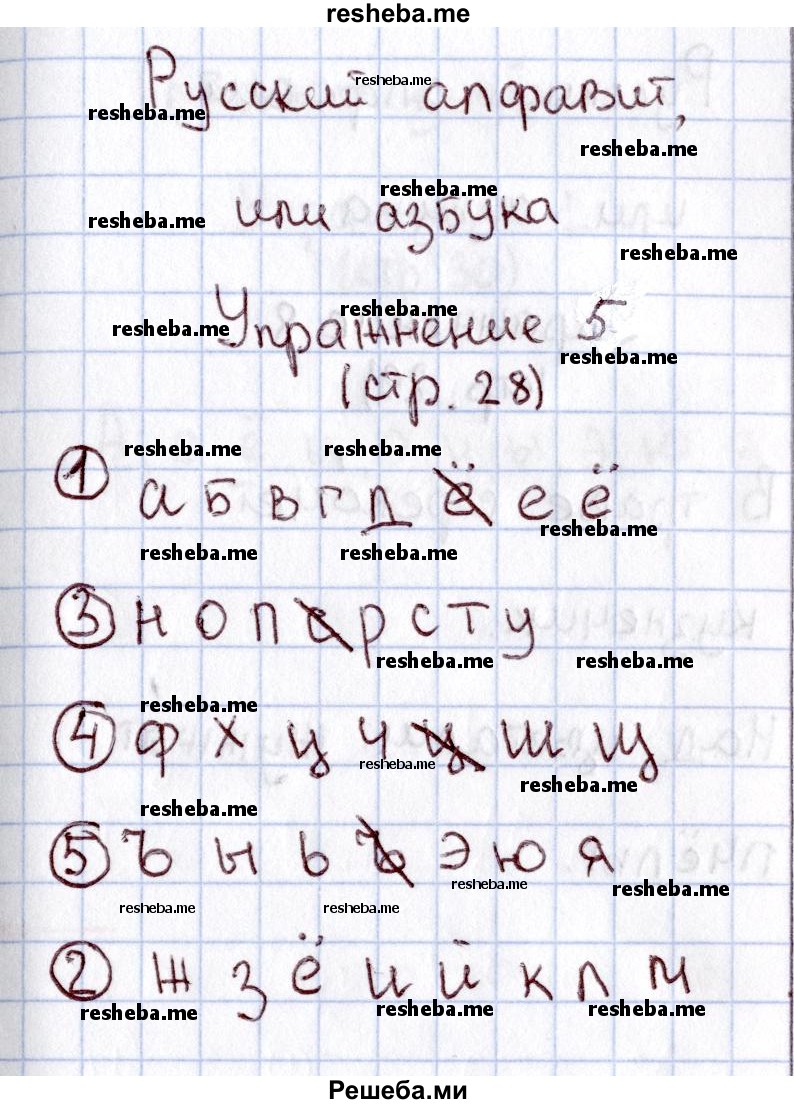 resheba.me
Русский resheba.me алфавит,
resheba.me
resheba.me
resheba.me
resheba.me или азбука
resheba.me
resheba.me
resheba.me Упражнение 5
resheba.me
(стр. 28)
resheba.me resheba.me
1 а б в г д ё е ё
resheba.me
resheba.me resheba.me
3 н о п с р с т у
resheba.me resheba.me
resheba.me
4 ф х ц ч ц ш щ
resheba.me
resheba.me
resheba.me
5 ъ ы ь ъ э ю я
resheba.me
resheba.me
resheba.me resheba.me
2 ж з ё и й к л м
resheba.me resheba.me resheba.me
Решеба.ми